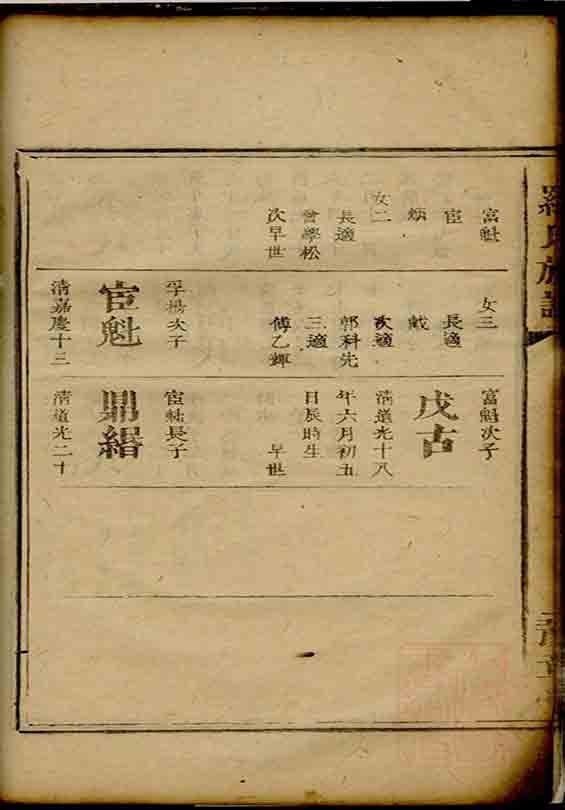 羅氏族譜
富魁
宦
炳
女二
長適
曾學松
次早世
女三
長適
戴
次適
郭科先
三適
傅乙輝
孚揚次子
宦魁
清嘉慶十三
富魁次子
戊古
清道光十八
年六月初五
日辰時生
早世
宦魁長子
鼎緒
清道光二十